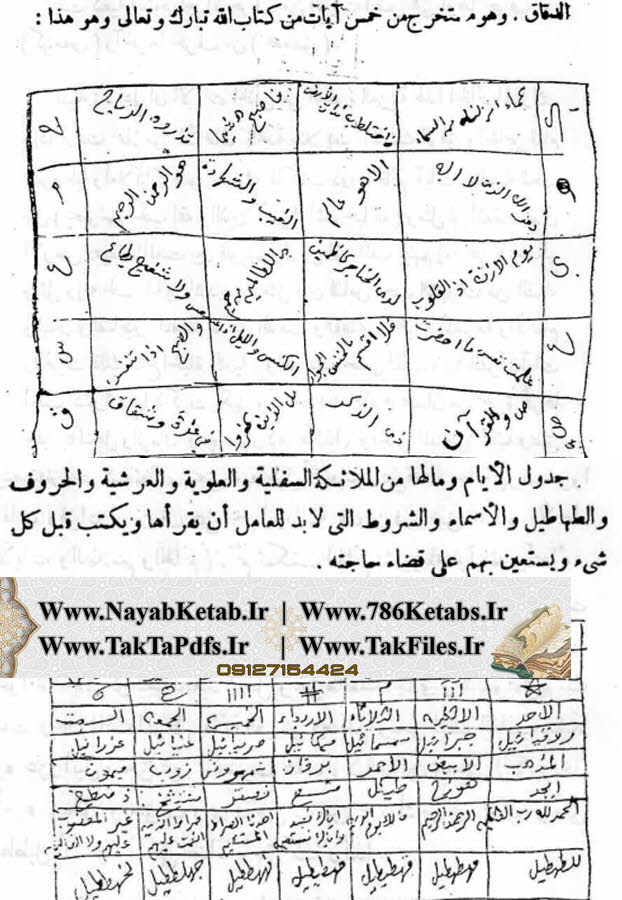 الدقاق . وهو متخرج من خمس آيات من كتاب الله تبارك وتعالى وهو هذا :
كماء انزلناه من السماء فاختلط به نبات الأرض فاصبح هشيما تذروه الرياح
هو الله الذي لا اله الا هو عالم الغيب والشهادة هو الرحمن الرحيم
يوم الازفة اذ القلوب لدى الحناجر كاظمين ما للظالمين من حميم ولا شفيع يطاع
علمت نفس ما احضرت فلا اقسم بالخنس الجوار الكنس والليل اذا عسعس والصبح اذا تنفس
ص ص والقرآن ذي الذكر بل الذين كفروا في عزة وشقاق ق
جدول الأيام ومالها من الملائكة السفلية والعلوية والعرشية والحروف
والطهاطيل والأسماء والشروط التى لابد للعامل أن يقرأها ويكتب قبل كل
شىء ويستعين بهم على قضاء حاجته .
Www.NayabKetab.Ir | Www.786Ketabs.Ir
Www.TakTaPdfs.Ir | Www.TakFiles.Ir
09127154424
الاحد الاثنين الثلاثاء الاربعاء الخميس الجمعه السبت
روقيائيل جبرائيل سمسمائيل ميكائيل صرفيائيل عنيائيل عزرائيل
المذهب الابيض الاحمر برقان شمهورش زوبعه ميمون
ابجد هوزح طيكل منسع فصقر شتثخ ذضظغ
الحمد لله رب العالمين الرحمن الرحيم مالك يوم الدين اياك نعبد واياك نستعين اهدنا الصراط المستقيم صراط الذين انعمت عليهم غير المغضوب عليهم ولا الضالين
للطهطيل مهطهطيل قهطيطيل فهطبطيل نهههطيل جهلططيل لخهططيل